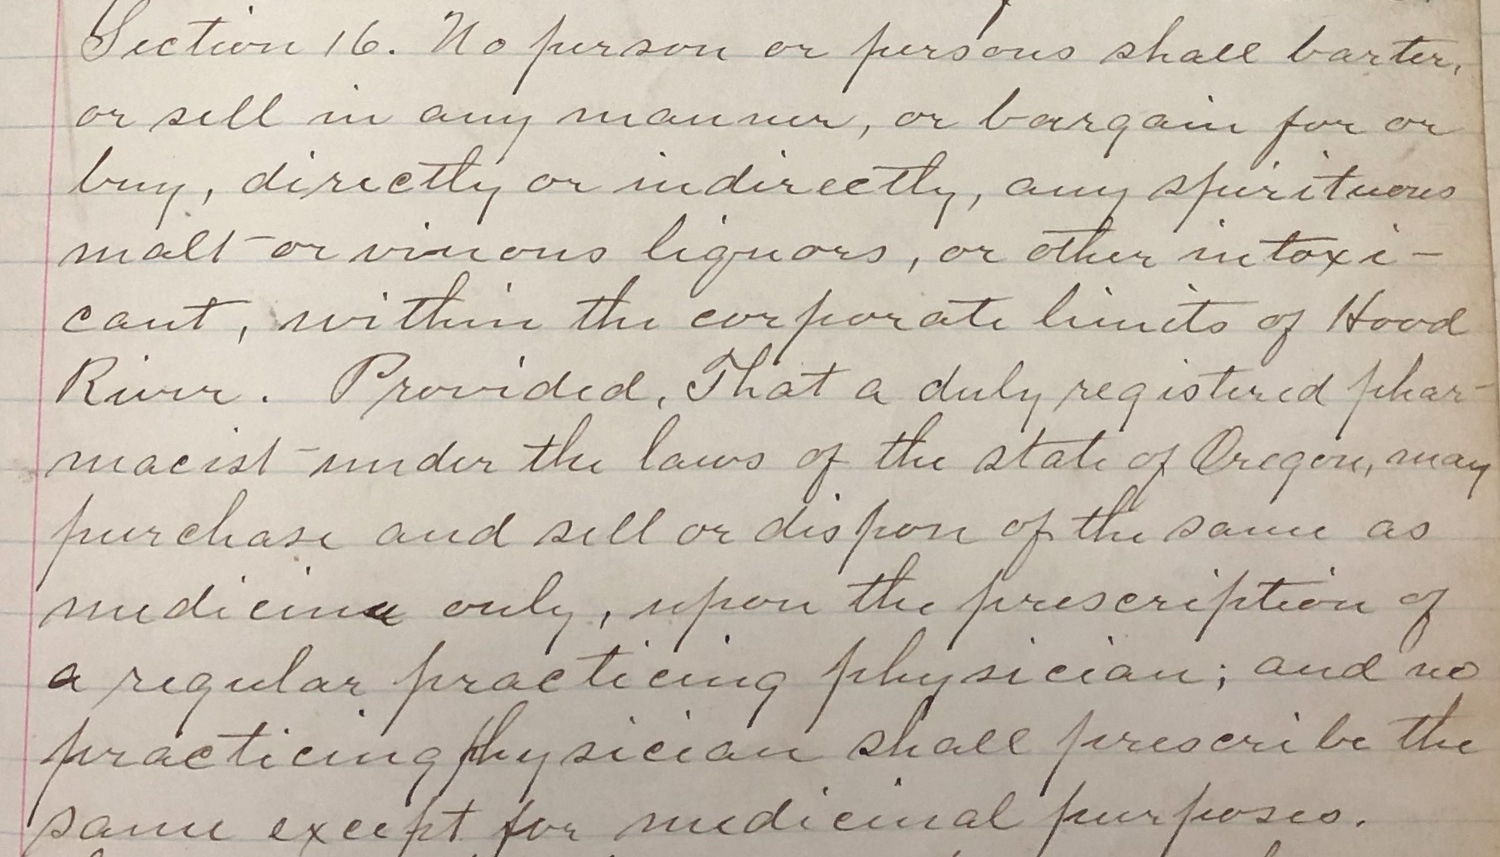 Section 16. No person or persons shall barter,
or sell in any manner, or bargain for or
buy, directly or indirectly, any spirituous
malt or vinous liquors, or other intoxi-
cant, within the corporate limits of Hood
River. Provided, That a duly registered phar-
macist under the laws of the state of Oregon, may
purchase and sell or dispose of the same as
medicine only, upon the prescription of
a regular practicing physician; and no
practicing physician shall prescribe the
same except for medicinal purposes.